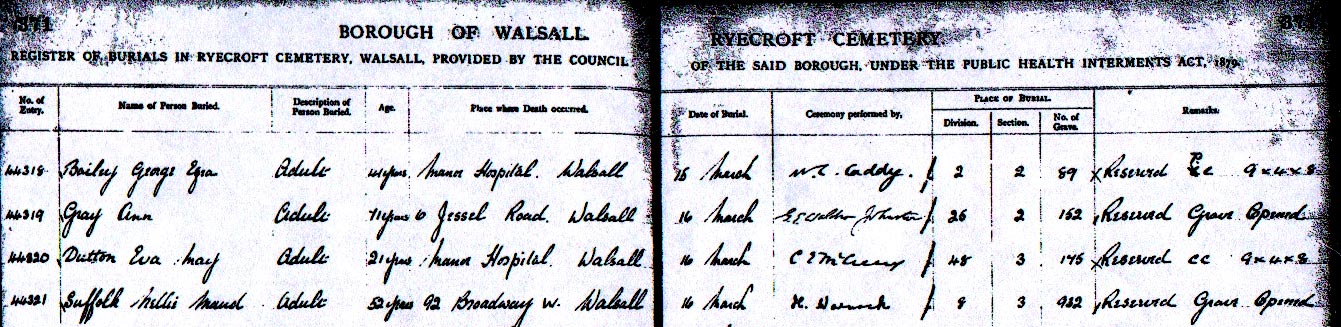 371
BOROUGH OF WALSALL.
REGISTER OF BURIALS IN RYECROFT CEMETERY, WALSALL, PROVIDED BY THE COUNCIL
RYECROFT CEMETERY.
OF THE SAID BOROUGH, UNDER THE PUBLIC HEALTH INTERMENTS ACT, 1879.
No. of Entry. Name of Person Buried. Description of Person Buried. Age. Place where Death occurred. Date of Burial. Ceremony performed by, PLACE OF BURIAL. Division. Section. No. of Grave. Remarks.
44318 Bailey George Ezra Adult 41 yrs Manor Hospital. Walsall 15 March W. C. Caddy. 2 2 89 Reserved cc 9x4x8
44319 Gray Ann Adult 71 years 6 Jessel Road. Walsall 16 March Johnston 26 2 152 Reserved Grave Opened
44320 Dutton Eva May Adult 21 yrs Manor Hospital. Walsall 16 March 48 3 175 Reserved cc 9x4x8
44321 Suffolk Nellie Maud Adult 52 years 92 Broadway W. Walsall 16 March H. 8 3 932 Reserved Grave Opened